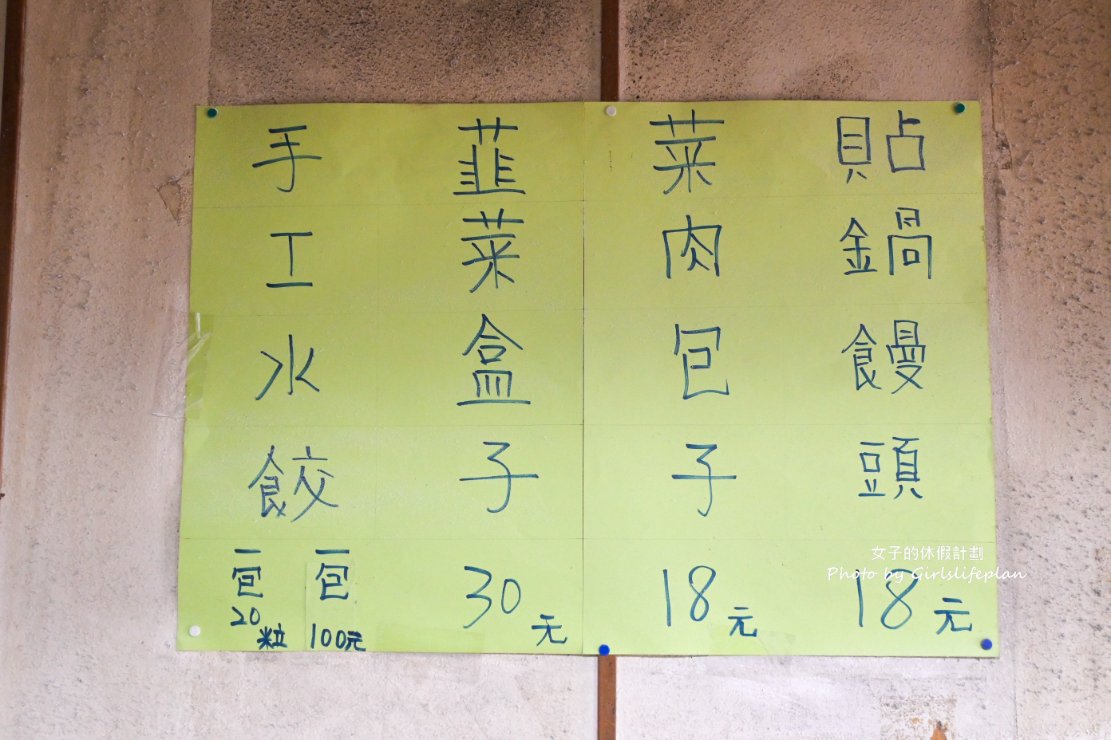 貼鍋饅頭
18元
菜肉包子
18元
韮菜盒子
30元
手工水餃
一包
100元
一包
20粒
女子的休假計劃
Photo by Girlslifeplan